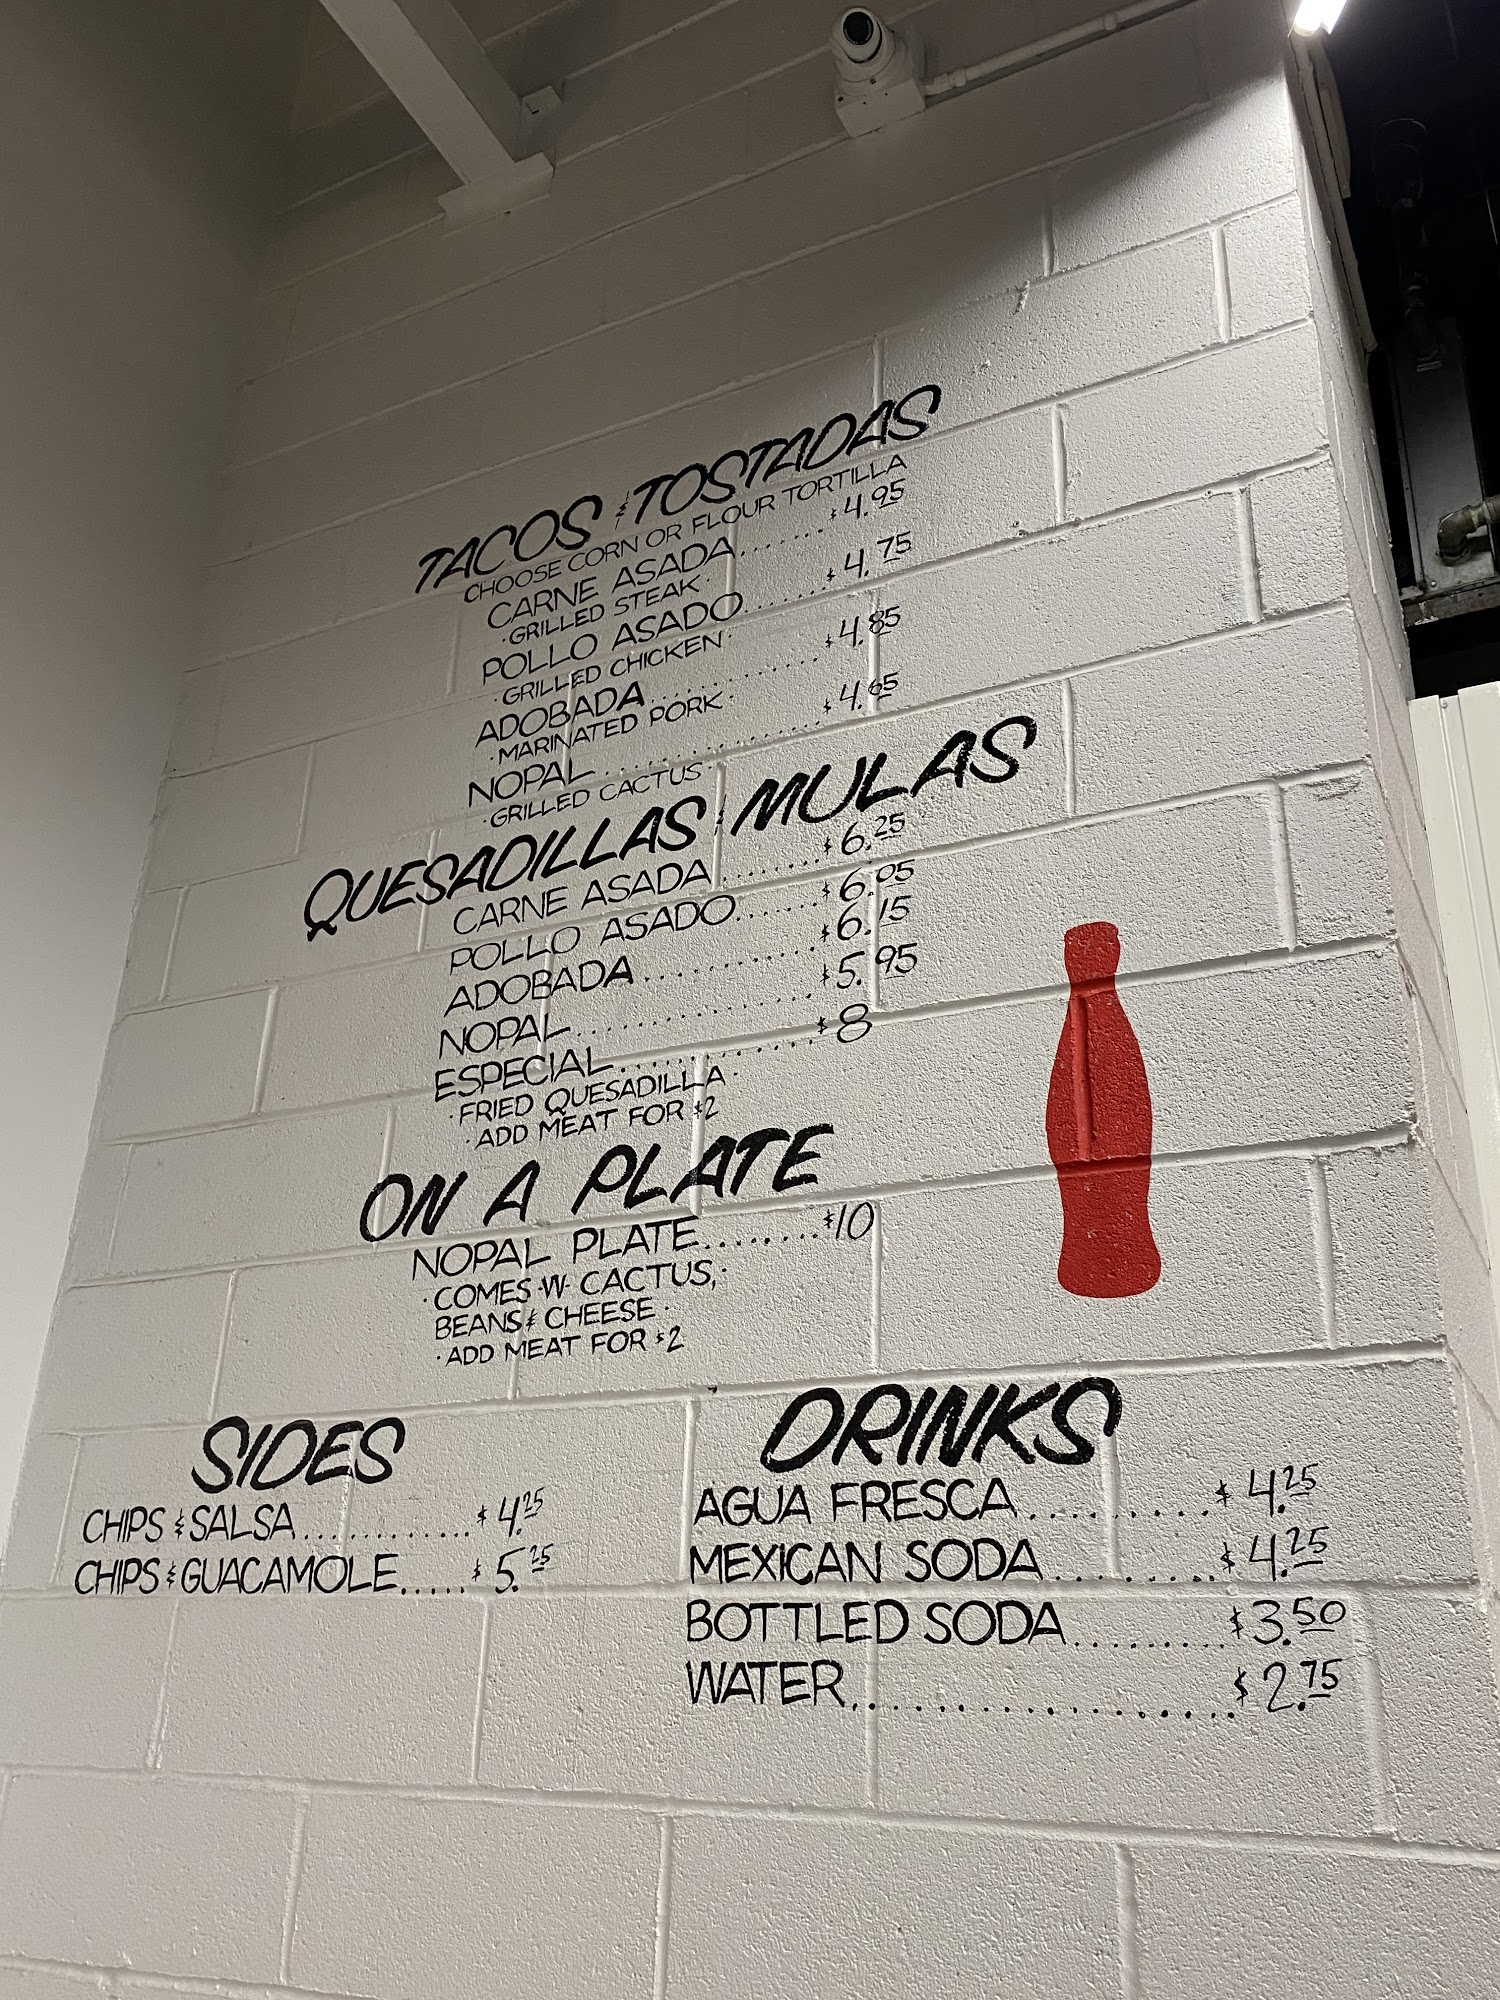 TACOS & TOSTADAS
CHOOSE CORN OR FLOUR TORTILLA
CARNE ASADA........$4.95
·GRILLED STEAK·
POLLO ASADO........$4.75
·GRILLED CHICKEN·
ADOBADA..............$4.85
·MARINATED PORK·
NOPAL..................$4.65
·GRILLED CACTUS·
QUESADILLAS & MULAS
CARNE ASADA........$6.25
POLLO ASADO.......$6.05
ADOBADA.............$6.15
NOPAL..................$5.95
ESPECIAL...............$8
·FRIED QUESADILLA·
·ADD MEAT FOR $2
ON A PLATE
NOPAL PLATE........$10
·COMES ·W· CACTUS,·
BEANS & CHEESE·
·ADD MEAT FOR $2
SIDES
CHIPS & SALSA............$4.25
CHIPS & GUACAMOLE.....$5.25
DRINKS
AGUA FRESCA..........$4.25
MEXICAN SODA.........$4.25
BOTTLED SODA.........$3.50
WATER....................$2.75